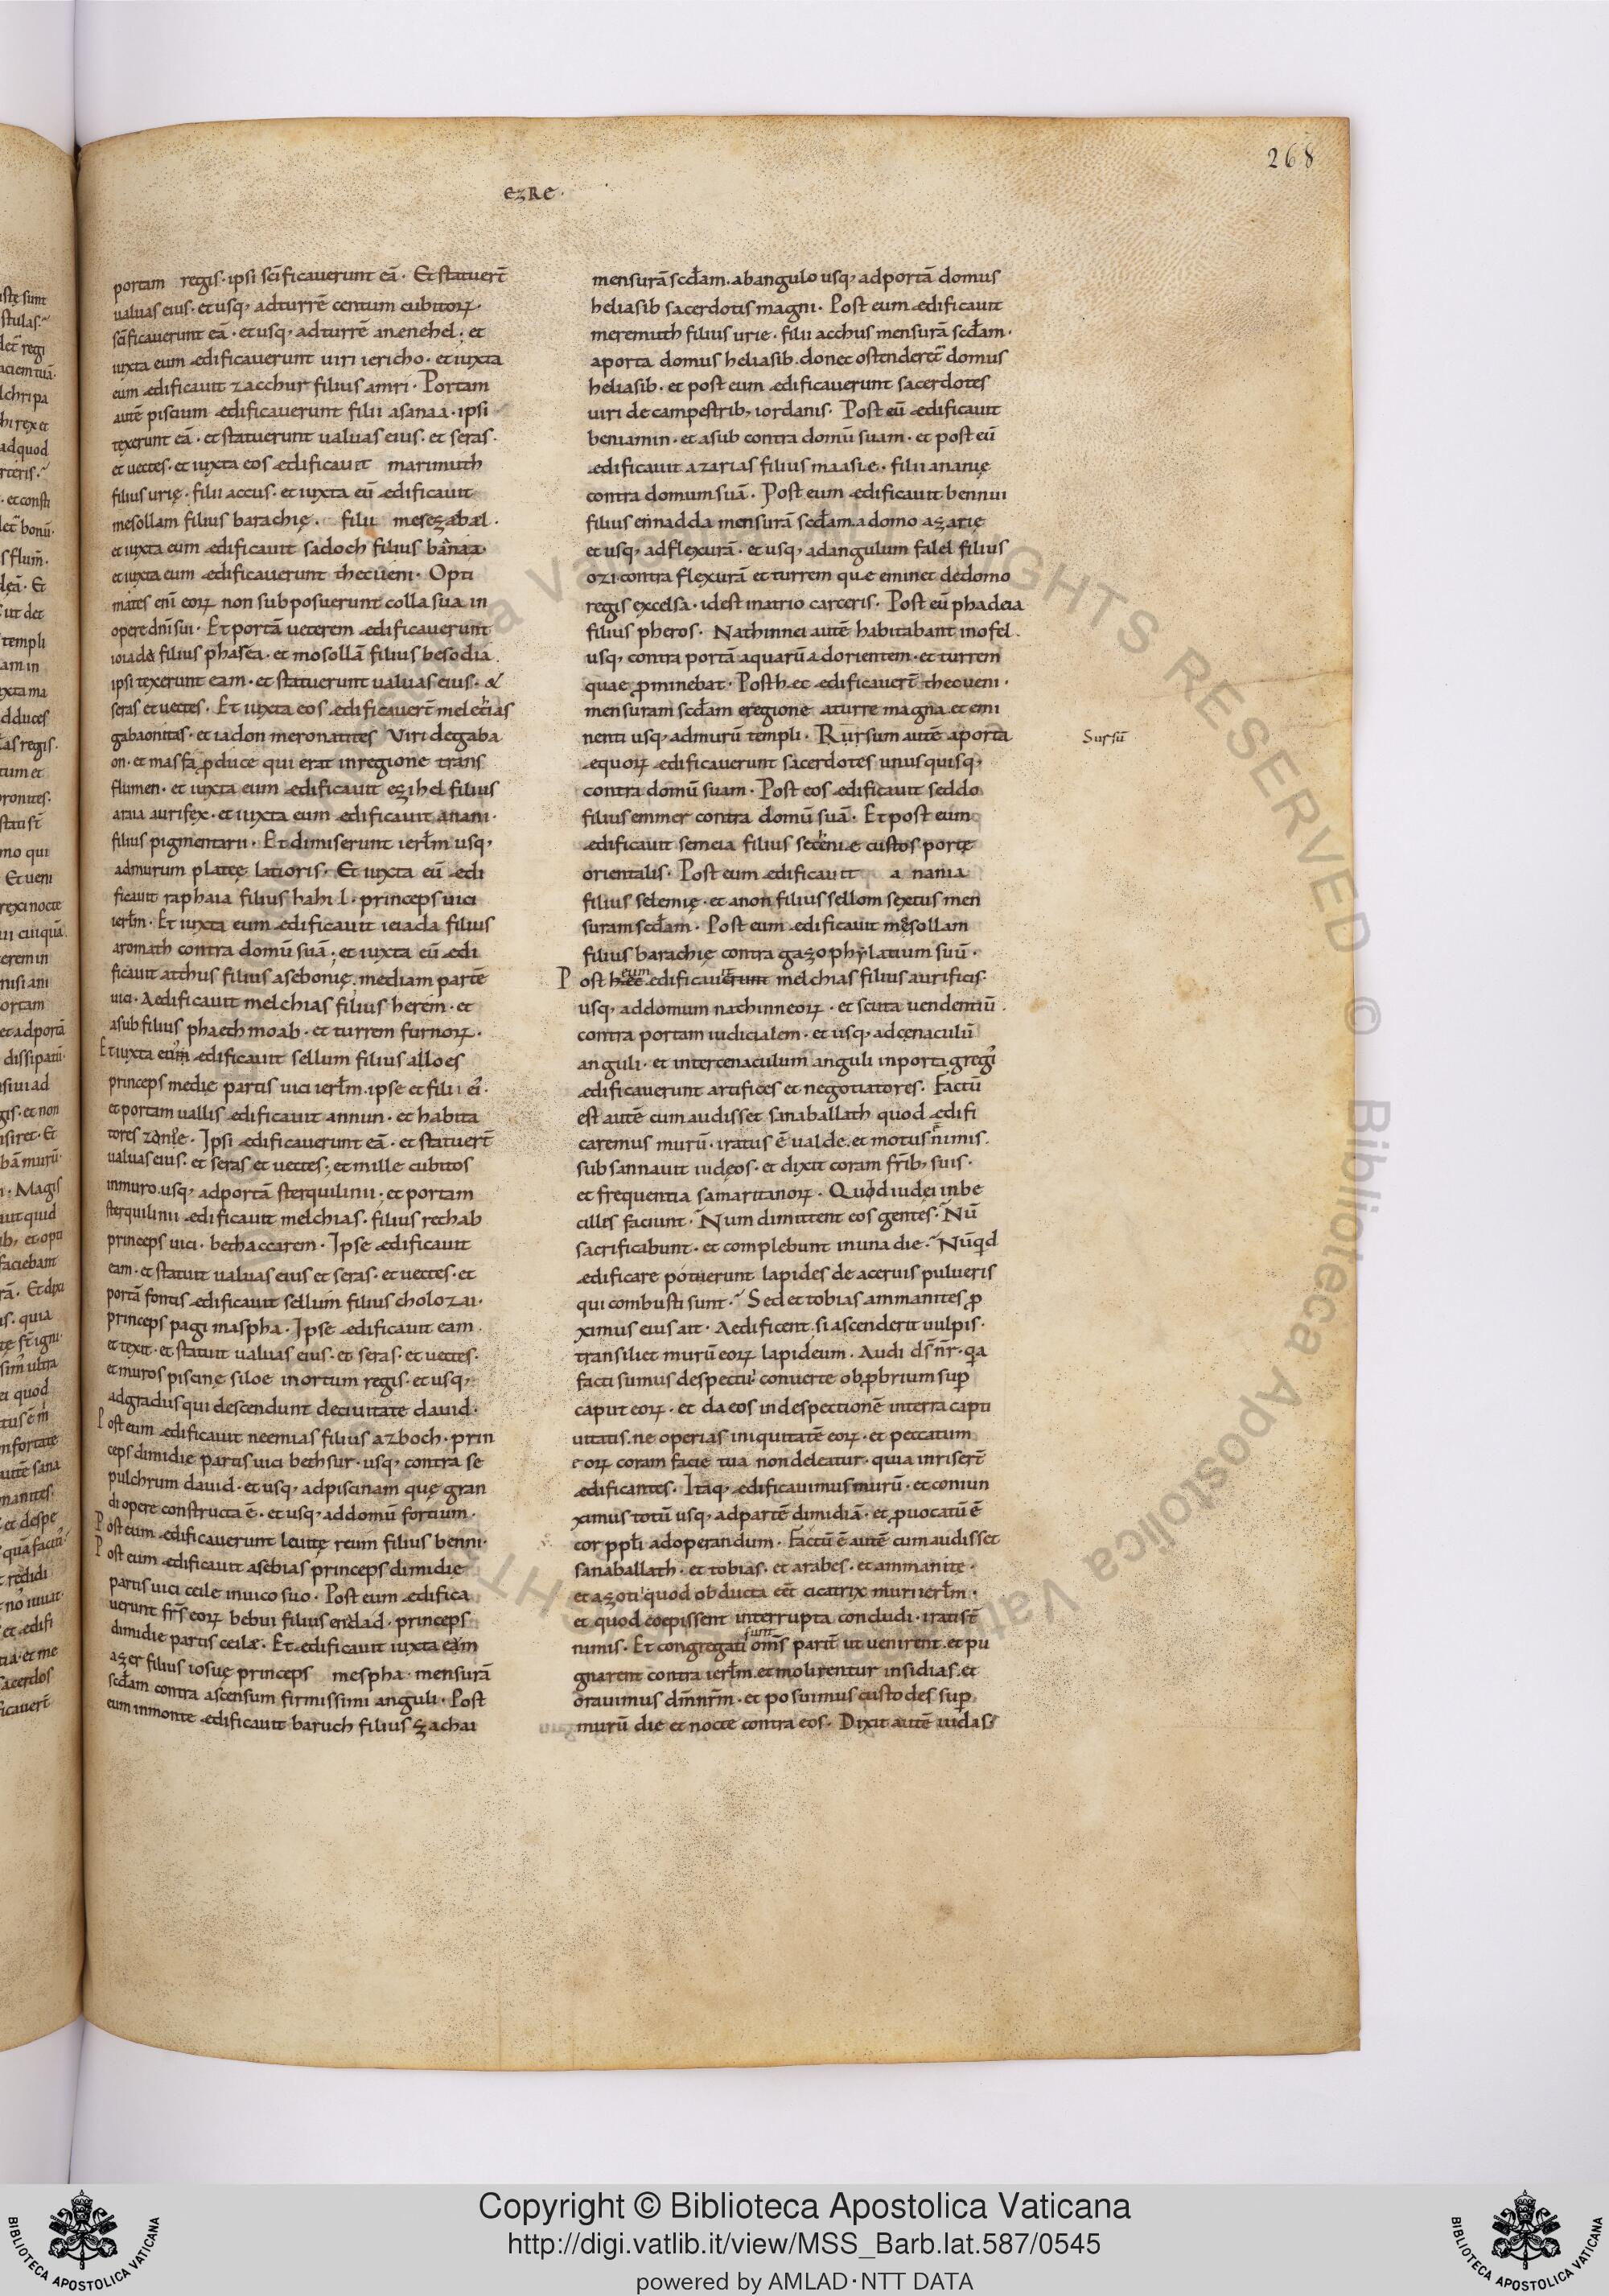 268
EZRE·
portam regis· ipsi scīficauerunt eā· Et statuer̄t
ualuas eius· et usq; ad turrē centum cubitoꝝ·
scīficauerunt eā· et usq; ad turrē anenehel· et
iuxta eum ędificauerunt uiri iericho· et iuxta
eum ędificauit zacchur filius amri· Portam
autē piscium ędificauerunt filii asanaa· ipsi
texerunt eā· et statuerunt ualuas eius· et seras·
et uectes· et iuxta eos ędificauit marimuth
filius urię· filii accus· et iuxta eū ędificauit
mesollam filius barachię· filii mesezabęl·
et iuxta eum ędificauit sadoch filius banaa·
et iuxta eum ędificauerunt thecueni· Opti
mates eni eoꝝ non subposuerunt colla sua in
opere dn̄i sui· Et portā ueterem ędificauerunt
ioiada filius phasea· et mosollā filius besodia·
ipsi texerunt eam· et statuerunt ualuas eius· &
seras et uectes· Et iuxta eos ędificauer̄t meletias
gabaonites· et iadon meronatites Viri de gaba
on· et masfa ꝓ duce qui erat in regione trans
flumen· et iuxta eum ędificauit ezihel filius
araia aurifex· et iuxta eum ędificauit anani·
filius pigmentarii· Et dimiserunt ierl̄m usq;
ad murum platęę latioris· Et iuxta eū ędi
ficauit raphaia filius hahi l· princeps uici
ierl̄m· Et iuxta eum ędificauit ieiada filius
aromath contra domū suā· et iuxta eū ędi
ficauit atthus filius asebonię· mediam partē
uici· Aedificauit melchias filius herem· et
asub filius phaeth moab· et turrem furnoꝝ·
Et iuxta eum ędificauit sellum filius alloes
princeps medię partis uici ierl̄m· ipse et filii ei᾽·
et portam uallis ędificauit annun· et habita
tores zanoe· Ipsi ędificauerunt eā· et statuer̄t
ualuas eius· et seras et uectes· et mille cubitos
in muro usq; ad portā sterquilinii· et portam
sterquilinii ędificauit melchias· filius rechab
princeps uici· bethaccarem· Ipse ędificauit
eam· et statuit ualuas eius et seras· et uectes· et
portā fontis ędificauit sellum filius cholozai·
princeps pagi maspha· Ipse ędificauit eam·
et texit· et statuit ualuas eius· et seras· et uectes·
et muros piscinę siloe in ortum regis· et usq;
ad gradus qui descendunt de ciuitate dauid·
Post eum ędificauit neemias filius azboch· prin
ceps dimidię partis uici bethsur· usq; contra se
pulchrum dauid· et usq; ad piscinam quę gran
di opere constructa ē· et usq; ad domū fortium·
Post eum ędificauerunt leuitę reum filius benni·
Post eum ędificauit asebias princeps dimidię
partis uici ceile in uico suo· Post eum ędifica
uerunt frs̄ eoꝝ bebui filius enadad· princeps
dimidię partis ceilæ· Et ędificauit iuxta eam
azer filius iosuę princeps mespha· mensurā
scd̄am contra ascensum firmissimi anguli· Post
eum in monte ędificauit baruch filius zachai
mensurā scd̄am· ab angulo usq; ad portā domus
heliasib sacerdotis magni· Post eum ędificauit
meremuth filius urie· filii acchus mensurā scd̄am·
a porta domus heliasib· donec ostenderet᷑ domus
heliasib· et post eum ędificauerunt sacerdotes
uiri de campestrib; iordanis· Post eū ędificauit
beniamin· et asub contra domū suam· et post eū
ędificauit azarias filius maasię· filii ananię
contra domum suā· Post eum ędificauit bennui
filius ennadda mensurā scd̄am· a domo azarię
et usq; ad flexurā· et usq; ad angulum falel filius
ozi· contra flexurā et turrem quę eminet de domo
regis excelsa· id est in atrio carceris· Post eū phadeia
filius pheros· Nathinnei autē habitabant in ofel·
usq; contra portā aquarū ad orientem· et turrem
quae ꝓminebat· Post hęc ędificauer̄t thecueni·
mensuram scd̄am e regione a turre magna et emi
nenti usq; ad murū templi· Rursum autē a porta
ęquoꝝ ędificauerunt sacerdotes unusquisq;
contra domū suam· Post eos ędificauit seddo
filius emmer contra domū suā· Et post eum
ędificauit semeia filius sechenię custos portę
orientalis· Post eum ędificauit a nania
filius selemię· et anon filius sellom sextus men
suram scd̄am· Post eum ędificauit mesollam
filius barachię contra gazophylatium suū·
Post hęc eum ędificauerunt it melchias filius aurificis·
usq; ad domum nathinneoꝝ· et scuta uendentiū·
contra portam iudicialem· et usq; ad cenaculū
anguli· et inter cenaculum anguli in porta gregi᾽
ędificauerunt artifices et negotiatores· Factū
est autē cum audisset sanaballath quod ędifi
caremus murū· iratus ē ualde· et motus nimis·
subsannauit iudęos· et dixit coram fr̄ib; suis·
et frequentia samaritanoꝝ· Quid iudęi inbe
cilles faciunt· Num dimittent eos gentes· Nū
sacrificabunt· et complebunt in una die· Nūqd
ędificare poterunt lapides de aceruis pulueris
qui combusti sunt· Sed et tobias ammanites ꝓ
ximus eius ait· Aedificent· si ascenderit uulpis·
transiliet murū eoꝝ lapideum· Audi ds̄ nr̄· qa
facti sumus despectui conuerte obꝓbrium suꝑ
caput eoꝝ· et da eos in despectionē in terra capti
uitatis· ne operias iniquitatē eoꝝ· et peccatum
eoꝝ coram facie tua non deleatur· quia inriser̄t
ędificantes· Itaq; ędificauimus murū· et coniun
ximus totū usq; ad partē dimidiā· et ꝓuocatū ē
cor ppl̄i ad operandum· Factū ē autē cum audisset
sanaballath· et tobias· et arabes· et ammanitę·
et azoti quod obducta eēt cicatrix muri ierl̄m·
et quod coepissent interrupta concludi· irati st̄
nimis· Et congregati sunt om̄s parit᷑ ut uenirent· et pu
gnarent contra ierl̄m· et molirentur insidias· et
orauimus dm̄ nr̄m· et posuimus custodes suꝑ
murū die et nocte contra eos· Dixit autē iudas
Sursū
Copyright © Biblioteca Apostolica Vaticana
http://digi.vatlib.it/view/MSS_Barb.lat.587/0545
powered by AMLAD·NTT DATA
BIBLIOTECA APOSTOLICA VATICANA
BIBLIOTECA APOSTOLICA VATICANA